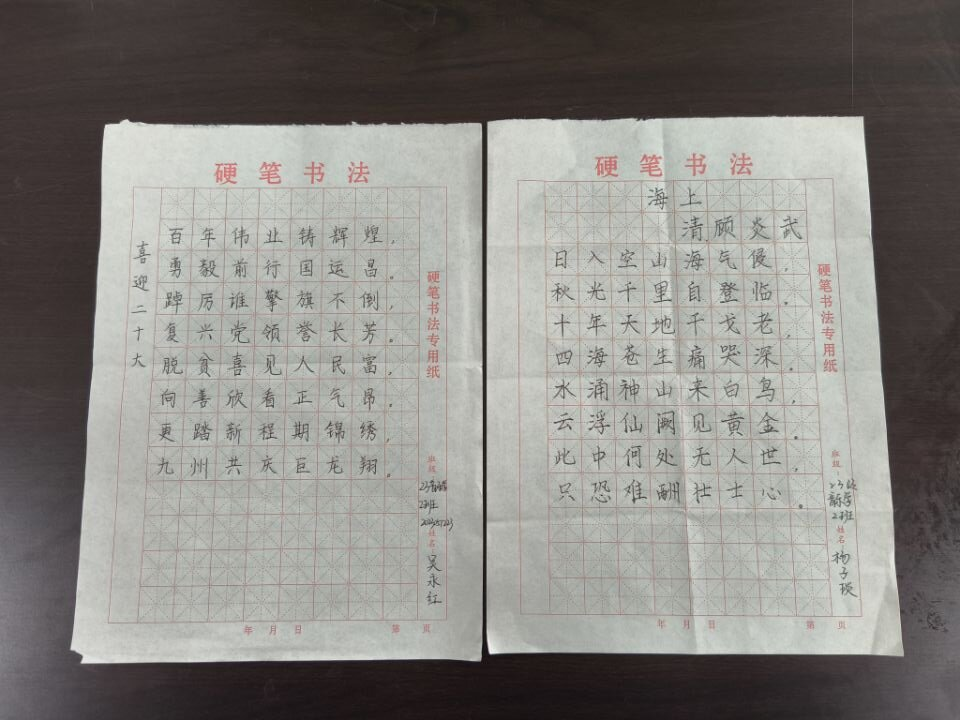 硬笔书法
喜迎二十大
百年伟业铸辉煌，
勇毅前行国运昌。
踔厉谁擎旗不倒，
复兴党领誉长芳。
脱贫喜见人民富，
向善欣看正气昂。
更踏新程期锦绣，
九州共庆巨龙翔。
硬笔书法专用纸
班级：
2班
姓名：
吴永红
年 月 日
第 页
硬笔书法
海上
清 顾炎武
日入空山海气侵，
秋光千里自登临。
十年天地干戈老，
四海苍生痛哭深。
水涌神山来白鸟，
云浮仙阙见黄金。
此中何处无人世，
只恐难酬壮士心。
硬笔书法专用纸
班级：
2班
姓名：
杨子琰
年 月 日
第 页